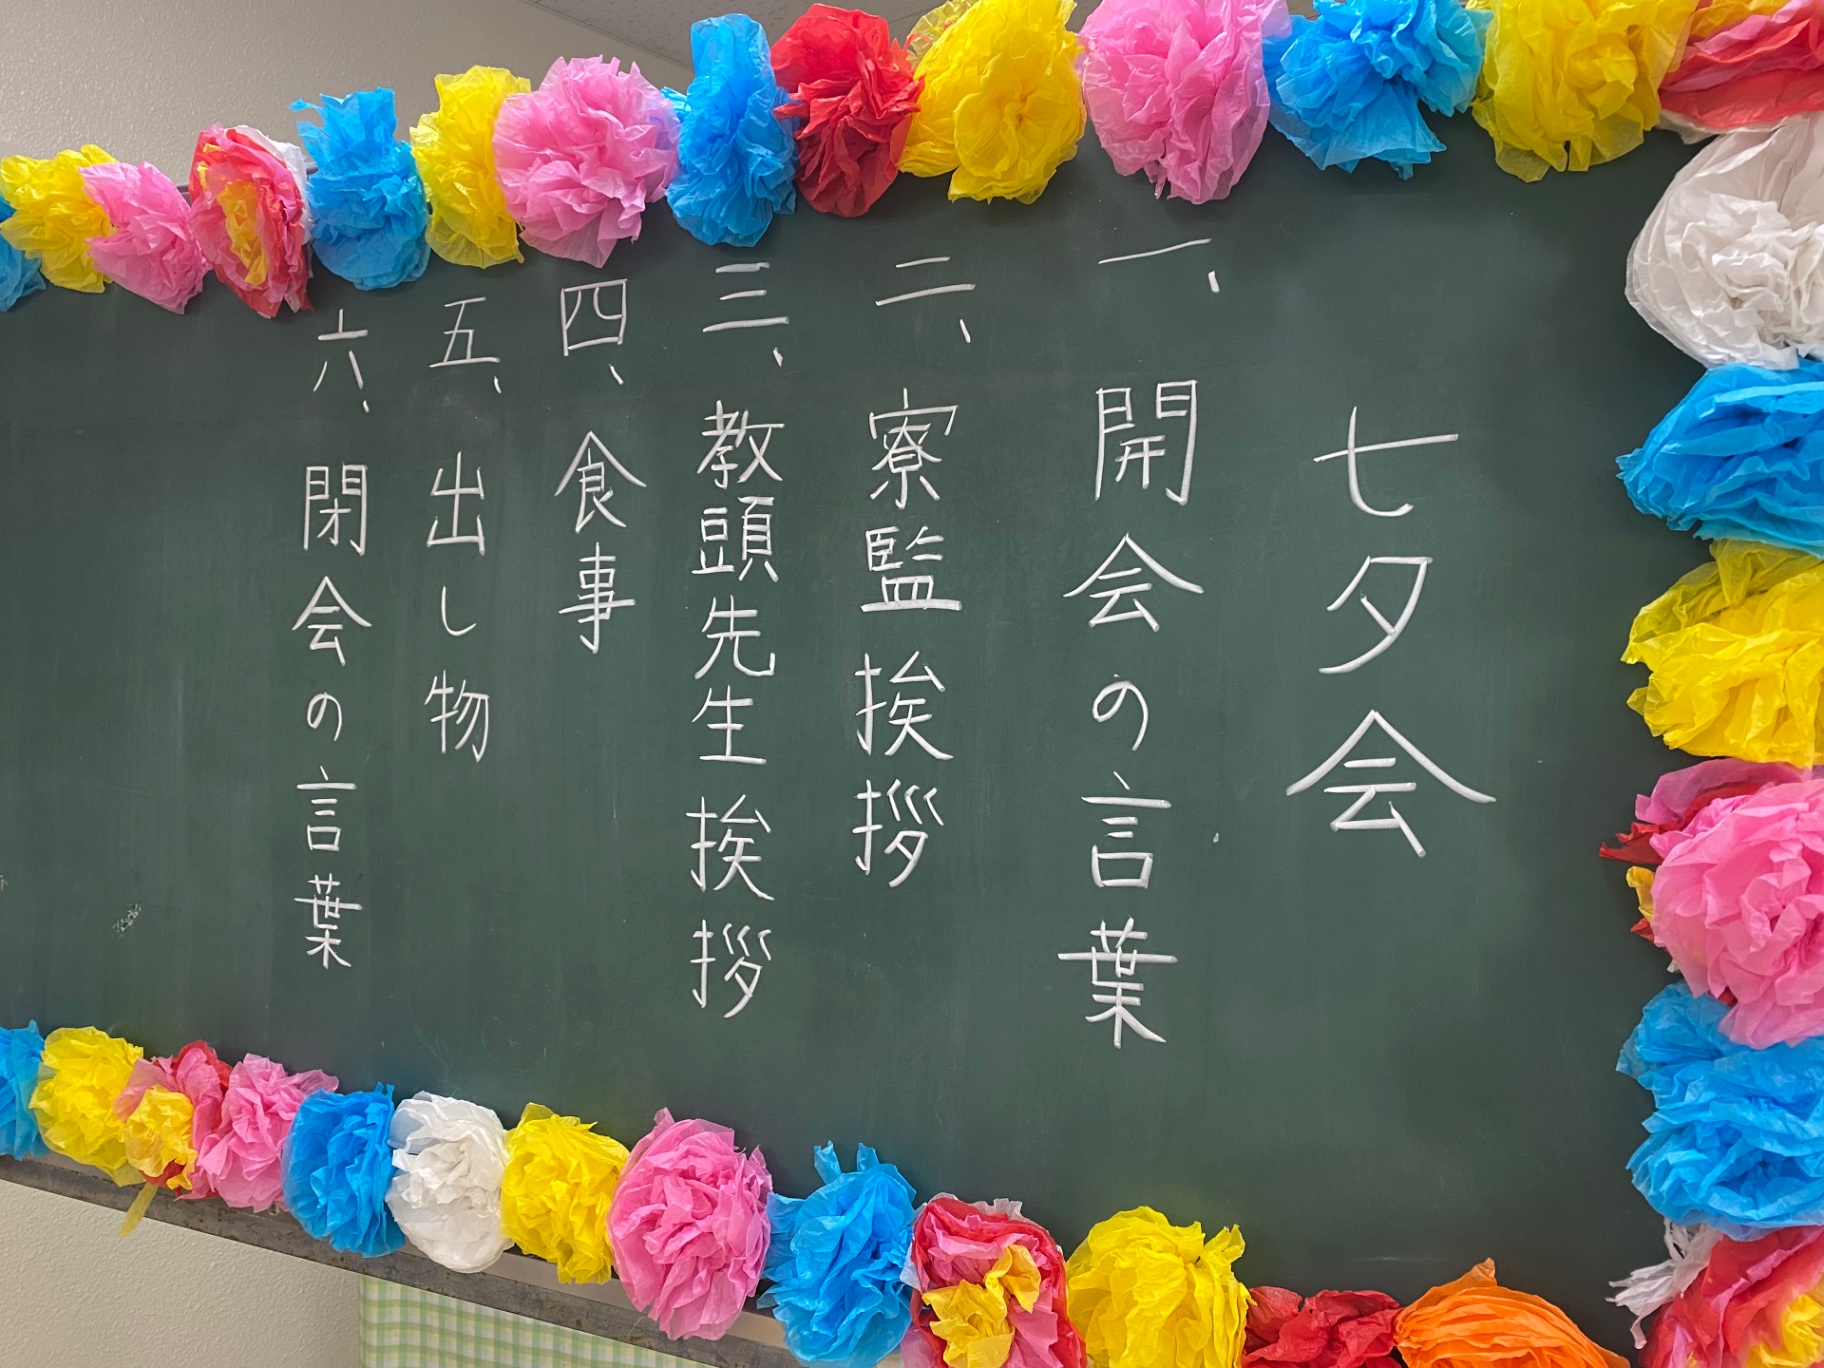 七夕会
一、開会の言葉
二、寮監挨拶
三、教頭先生挨拶
四、食事
五、出し物
六、閉会の言葉